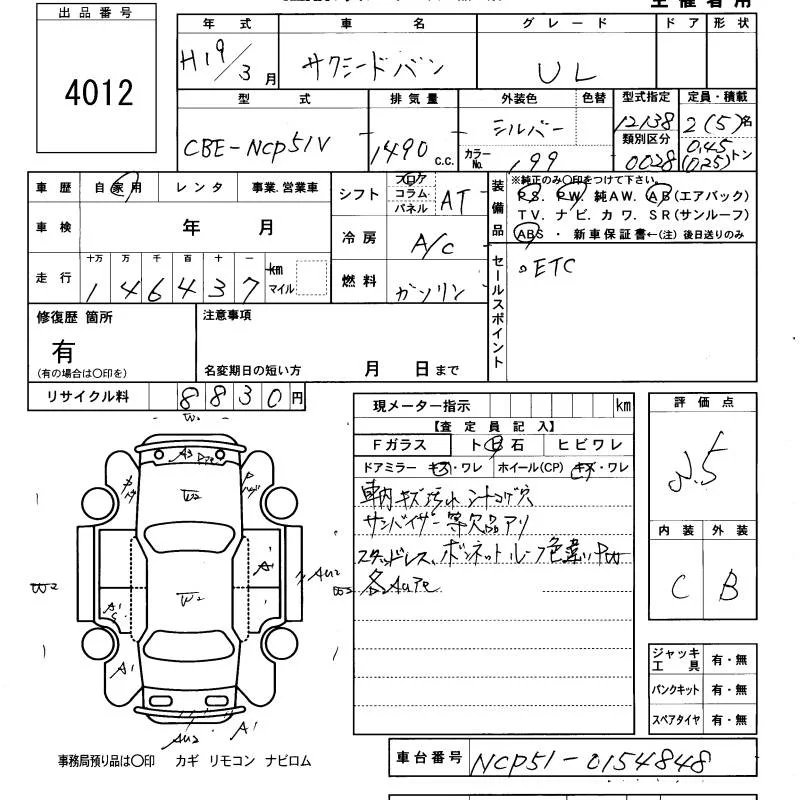 出品番号
4012
年 式 車 名 グレード ドア 形状
H19/3月 サクシードバン UL
型 式 排気量 外装色 色替 型式指定 定員・積載
CBE-NCP51V 1490 c.c. シルバー 12138 2(5)名
カラーNo. 199 類別区分 0028 0.45(0.25)トン
車歴 自家用 レンタ 事業.営業車
シフト フロア コラム パネル AT
装備品 ※純正のみ○印をつけて下さい。
PS. PW. 純AW. AB(エアバック)
TV. ナビ. カワ. SR(サンルーフ)
ABS ・ 新車保証書←(注) 後日送りのみ
車検 年 月
冷房 A/C
走行 十万 万 千 百 十 一
1 4 6 4 3 7 km マイル
燃料 ガソリン
セールスポイント
。ETC
修復歴 箇所
有
(有の場合は○印を)
注意事項
名変期日の短い方 月 日まで
リサイクル料 8 8 3 0 円
現メーター指示 km
【査定員記入】
Fガラス ト飛石 ヒビワレ
ドアミラー キズ・ワレ ホイール(CP) キズ・ワレ
車内キズ汚れ シートコゲ穴
サンバイザー等欠品アリ
スタッドレス、ボンネットルーフ色違い
評価点
内装 外装
C B
W2
A3
W2
A1
W2
A1
A1
W2
AU2
A1
ジャッキ工具 有・無
パンクキット 有・無
スペアタイヤ 有・無
事務局預り品は○印 カギ リモコン ナビロム
車台番号 NCP51-0154848